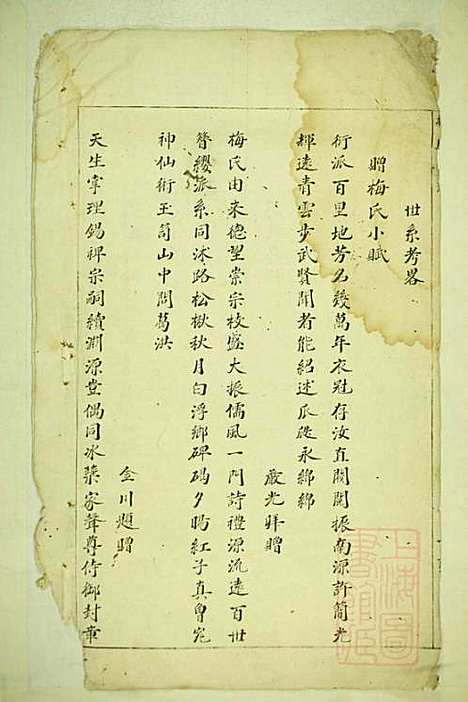 世系考畧
贈梅氏小賦
衍派百里地芳名幾萬年衣冠存汝直閥閱振南源許簡光
輝遠青雲步武賢聞者能紹述瓜瓞永綿綿
嚴光拜贈
梅氏由來德望崇宗枝盛大振儒風一門詩禮源流遠百世
簪纓派系同沭路松楸秋月白浮鄉碑碣夕陽紅子真曾究
神仙術玉笥山中問葛洪
金川題贈
天生宰理錫稗宗嗣續淵源豈偶同水槳家聲尊侍御封章
上海圖書館